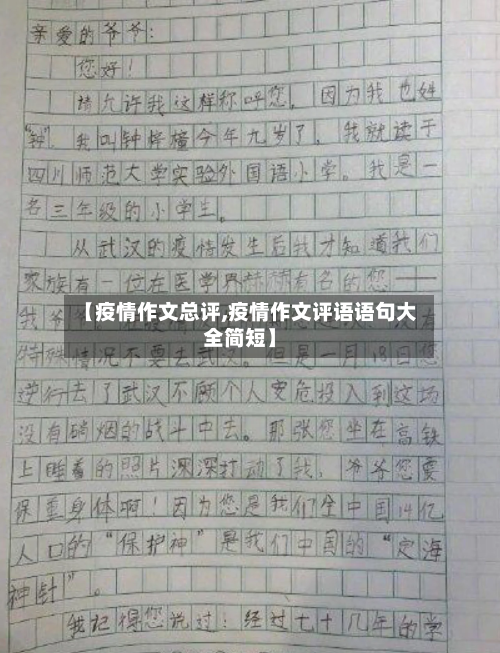 亲爱的爷爷：
您好！
请允许我这样称呼您，因为我也姓
“钟”。我叫钟梓橦今年九岁了，我就读于
四川师范大学实验外国语小学。我是一
名三年级的小学生。
从武汉的疫情发生后我才知道我们
家族有一位在医学界赫赫有名的您——
【疫情作文总评,疫情作文评语语句大
全简短】
特殊情况不要去武汉。但是一月18日您
逆行去了武汉不顾个人安危投入到这场
没有硝烟的战斗中去。那张您坐在高铁
上睡着的照片深深打动了我，爷爷您要
保重身体啊！因为您是我们全中国14亿
人口的“保护神”是我们中国的“定海
神针”。
我记得您说过！经过七十几年的学